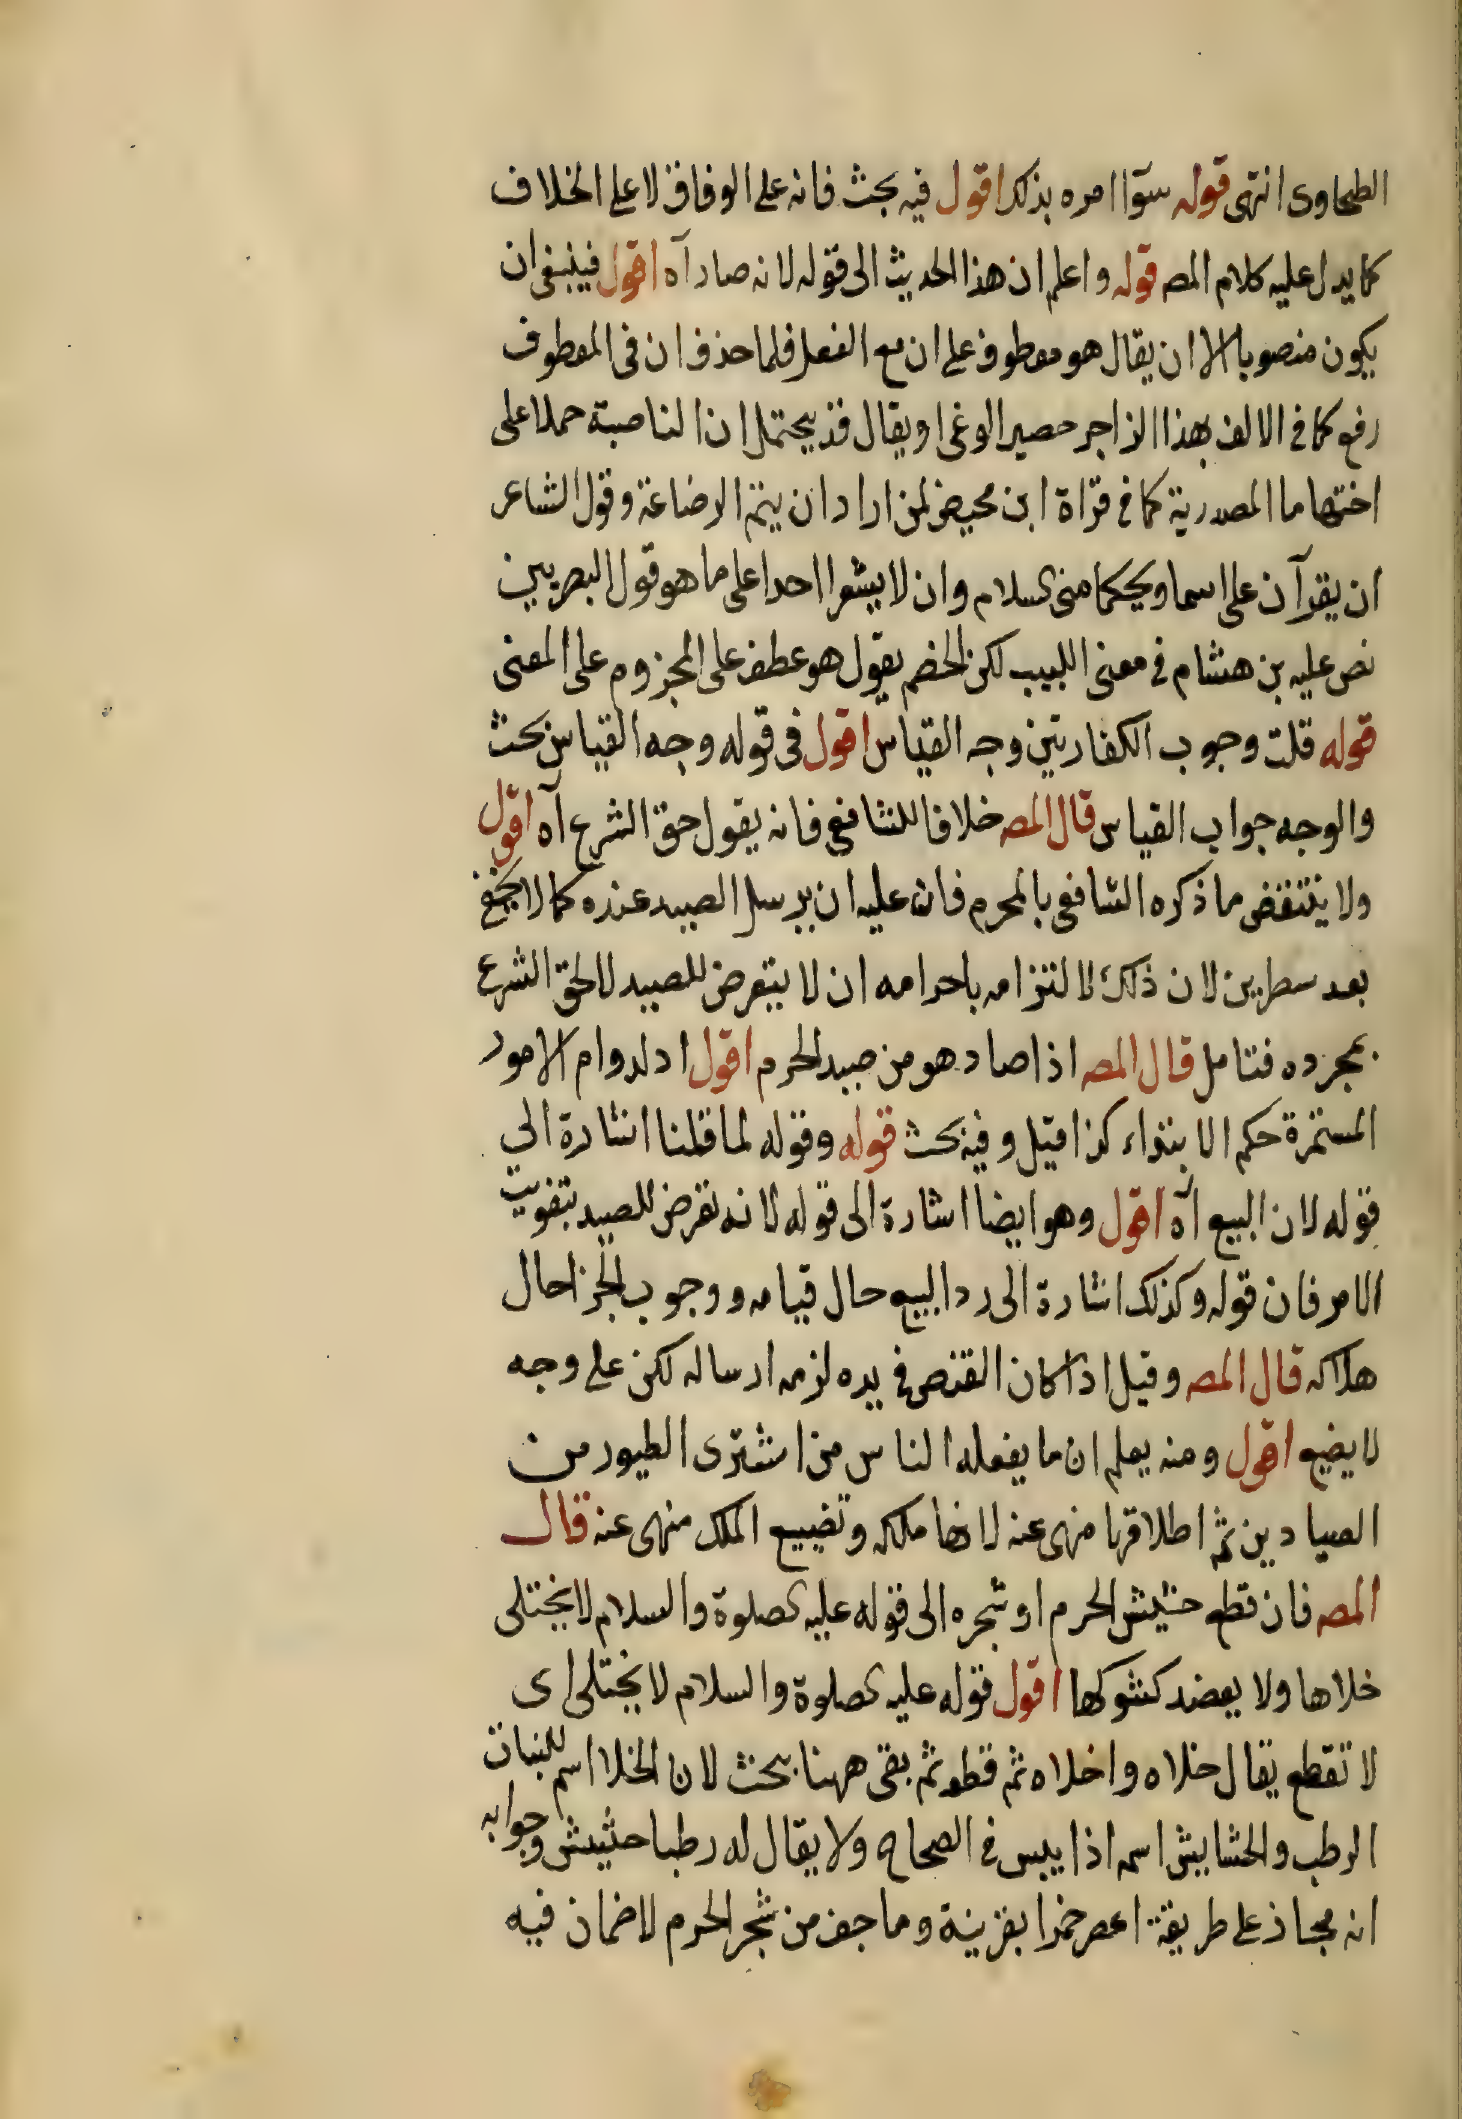 الطحاوى انتهى قوله سوآ امره بذلك اقول فيه بحث فانه على الوفاق لا على الخلاف
كما يدل عليه كلام المص قوله واعلم ان هذا الحديث الى قوله لانه صار آه اقول فينبغى ان
يكون منصوبا الا ان يقال هو معطوف على ان مع الفعل فلما حذف ان فى المعطوف
رفع كما فى الا لهذا الزاجر حصير الوغى او يقال قد يحتمل ان الناصبة حملا على
اختها ما المصدرية كما فى قراة ابن محيض لمن اراد ان يتم الرضاعة وقول الشاعر
ان يقرآن على اسما ويحكما منى السلام وان لا يشعرا احدا على ما هو قول البصريين
نص عليه بن هشام فى معنى اللبيب لكن الخصم يقول هو عطف على المجزوم على المعنى
قوله قلت وجوب الكفارتين وجه القياس اقول فى قوله وجه القياس بحث
والوجه جواب القياس قال المص خلافا للشافعى فانه يقول حق الشرع آه اقول
ولا ينتقض ما ذكره الشافعى بالمحرم فان عليه ان يرسل الصيد عنده كما لا يخفى
بعد سطرين لان ذلك لالتزامه باحرامه ان لا يتعرض للصيد لا لحق الشرع
بمجرده فتامل قال المص اذا صاد هو من صيد الحرم اقول اد لدوام الامور
المستمرة حكم الابتداء كذا قيل وفيه بحث قوله وقوله لما قلنا اشارة الى
قوله لان البيع آه اقول وهو ايضا اشارة الى قوله لانه تعرض للصيد بتفويت
الامر فان قوله وكذلك اشارة الى رد البيع حال قيامه ووجوب الجزا حال
هلاكه قال المص وقيل اذا كان القفص فى يده لزمه ارساله لكن على وجه
لا يضيع اقول ومنه يعلم ان ما يفعله الناس من اشترى الطيور من
الصيادين ثم اطلاقها منهى عنه لانها ملكه وتضييع الملك منهى عنه قال
المص فان قطع حشيش الحرم او شجره الى قوله عليه الصلوة والسلام لا يختلى
خلاها ولا يعضد كشوكها اقول قوله عليه الصلوة والسلام لا يختلى اى
لا تقطع يقال خلاه واخلاه ثم قطع ثم بقى ههنا بحث لان الخلا اسم للنبات
الرطب والحشايش اسمه اذا يبس فى الصحاح ولا يقال له رطبا حشيش وجوابه
انه مجاز على طريقة اعصر خمرا بقرينة وما جف من شجر الحرم لا ضمان فيه